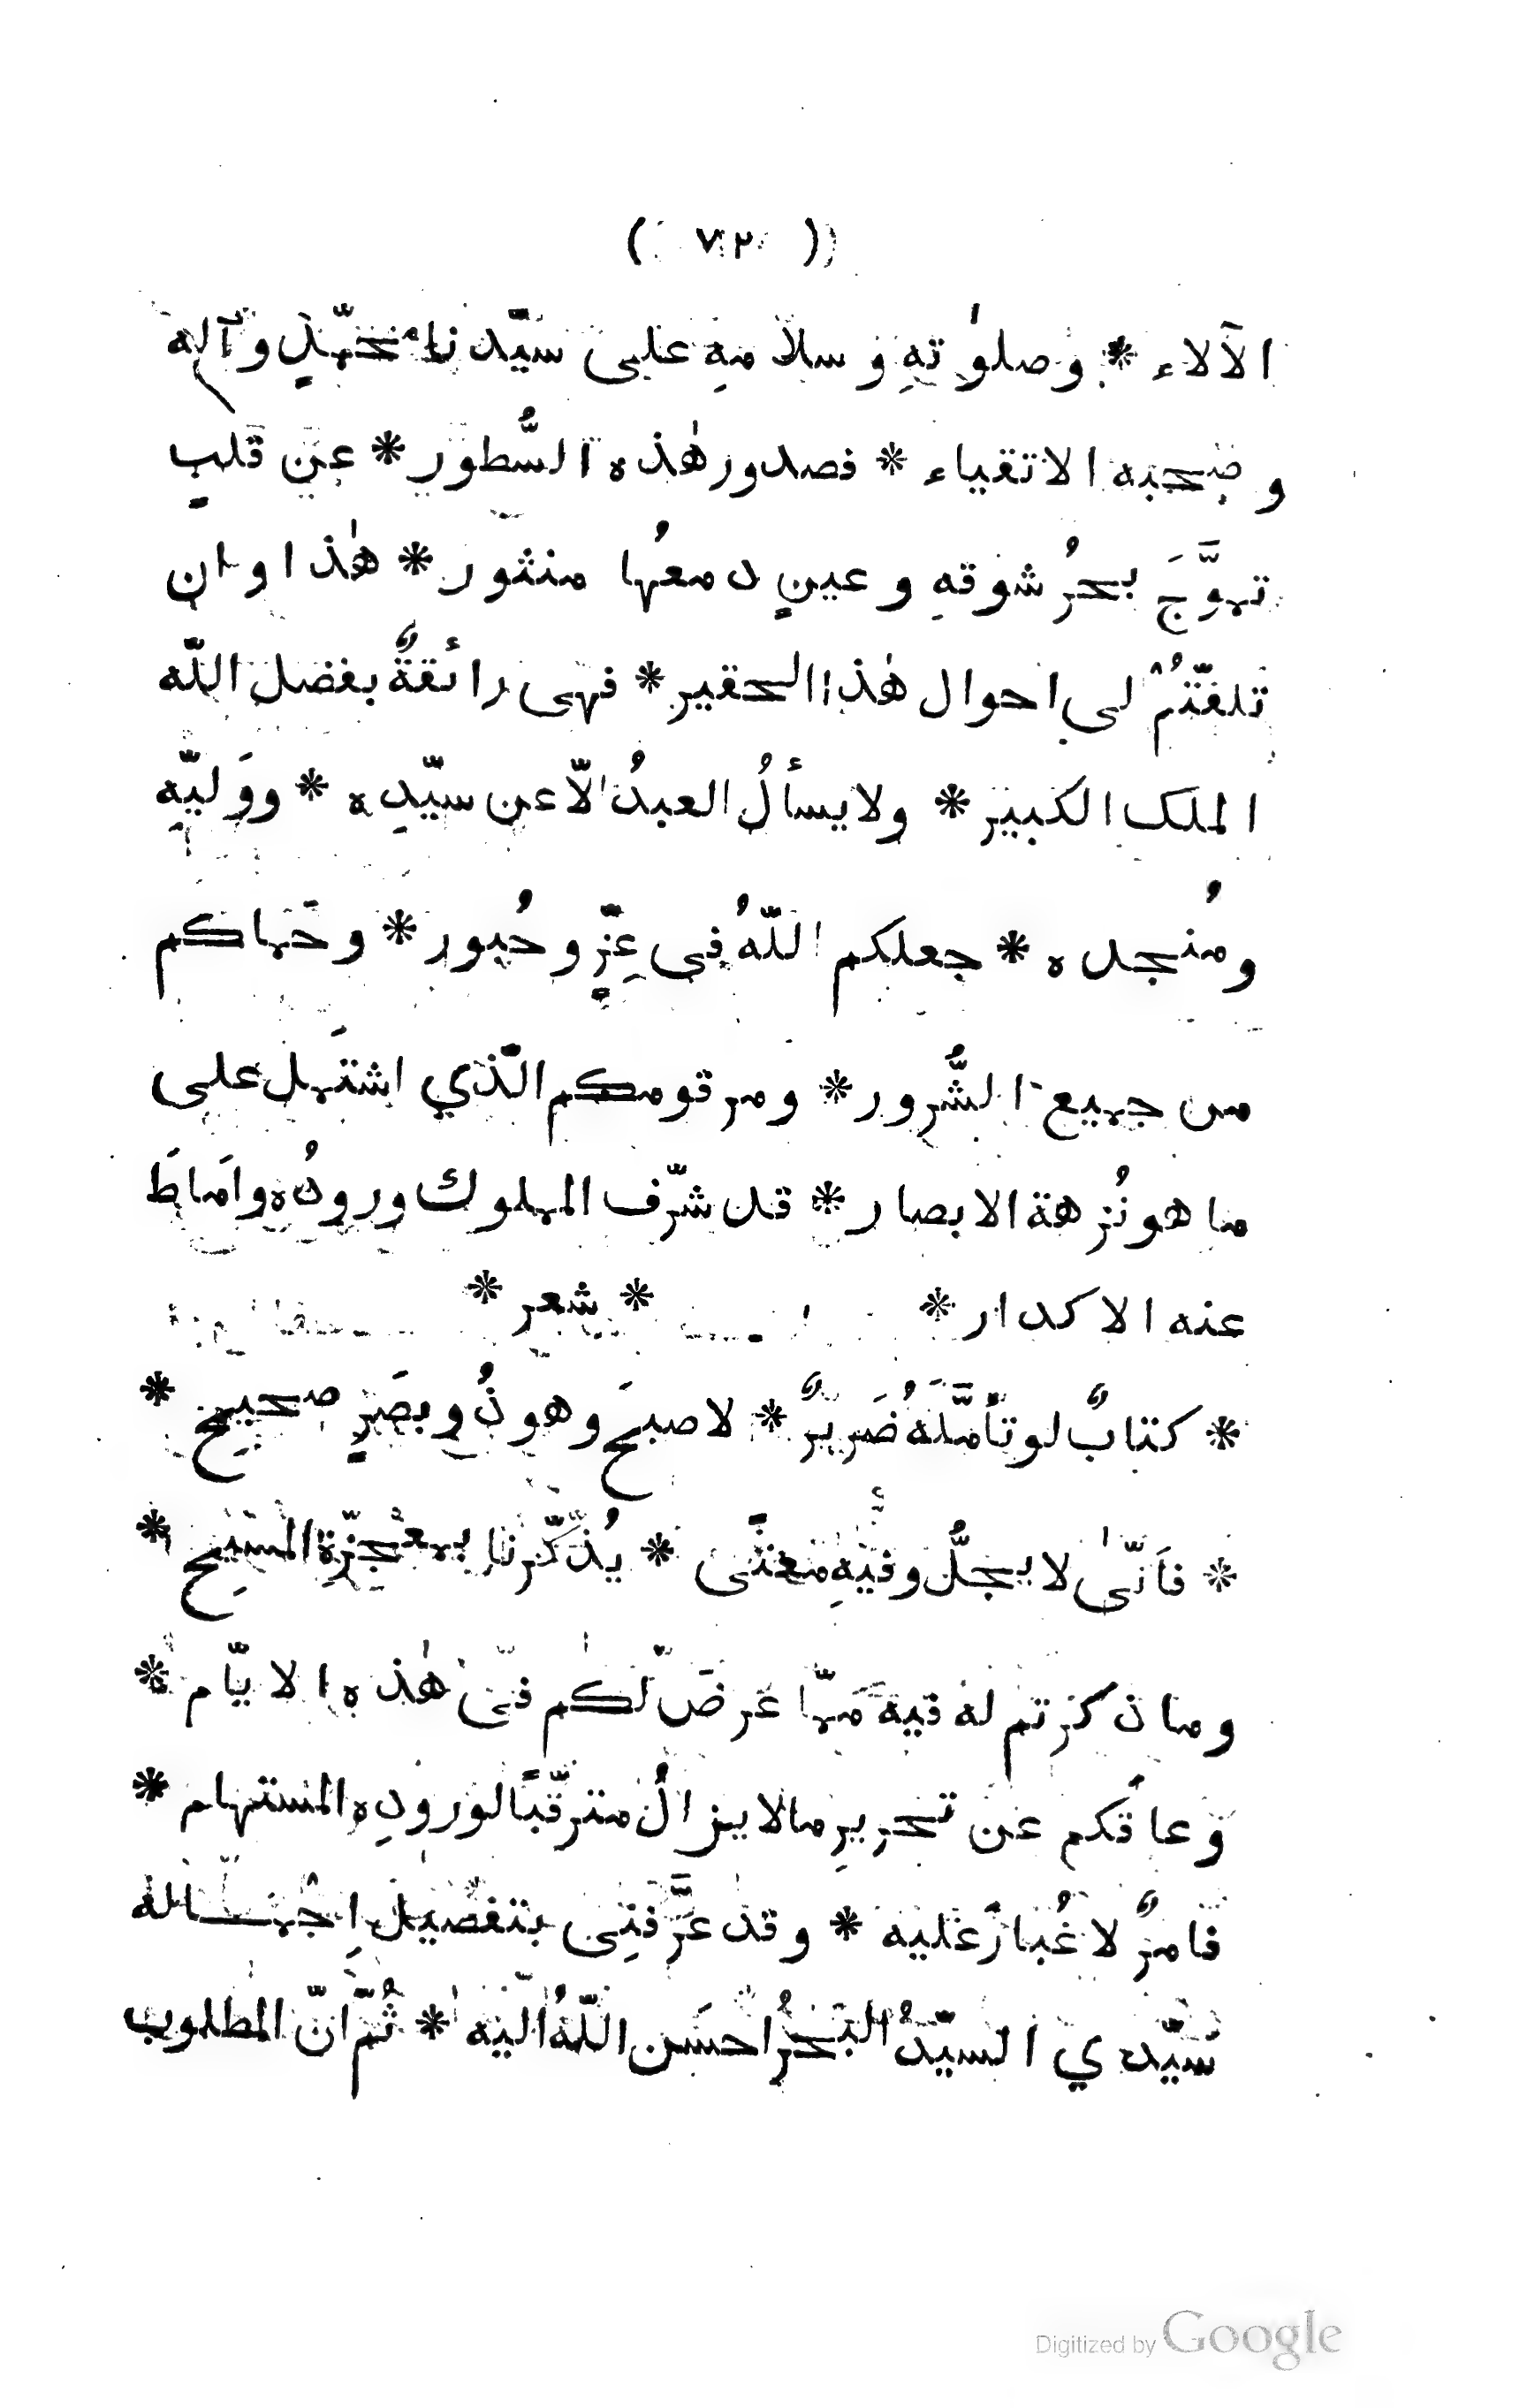 ( ٧٢ )
الآلاء * وصلوٰتهِ وسلامهِ على سيّدنا محمّدٍ وآله
وصحبه الاتقياء * فصدور هٰذه السُّطور * عن قلبٍ
تموَّجَ بحرُ شوقهِ وعينٍ دمعُها منثور * هٰذا وان
تلفّتُمْ لى احوال هٰذا الحقير * فهى رائقةٌ بفضل اللّه
الملك الكبير * ولا يسألُ العبدُ الّا عن سيّدِه * ووَليّهِ
ومُنجده * جعلكم اللّهُ فى عِزٍّ وحُبور * وحَماكم
من جميع الشُّرور * ومرقومكم الّذي اشتَمل على
ما هو نُزهة الابصار * قد شرّف المملوك ورودُه واَماطَ
عنه الاكدار * * شعر *
* كتابٌ لو تأمَّلَهُ ضَريرٌ * لاصبحَ وهو ذُو بصَرٍ صحيح *
* فاَنّىٰ لا يجلُّ وفيهِ معنًى * يُذكّرنا بمعجزةِ المسيح *
وما ذكرتم له فيه مَمّا عَرضَ لكم فى هٰذه الايّام *
وعاقَكم عن تحريرِ ما لا يزالُ مترقّبًا لورودِه المستهام *
فامرٌ لا غُبارَ عليه * وقد عَرَّفنِى بتفصيل اِجمـاله
سيّدي السيّدُ البحرُ احسَن اللّهُ اليه * ثُمّ اَنّ المطلوب
Digitized by Google